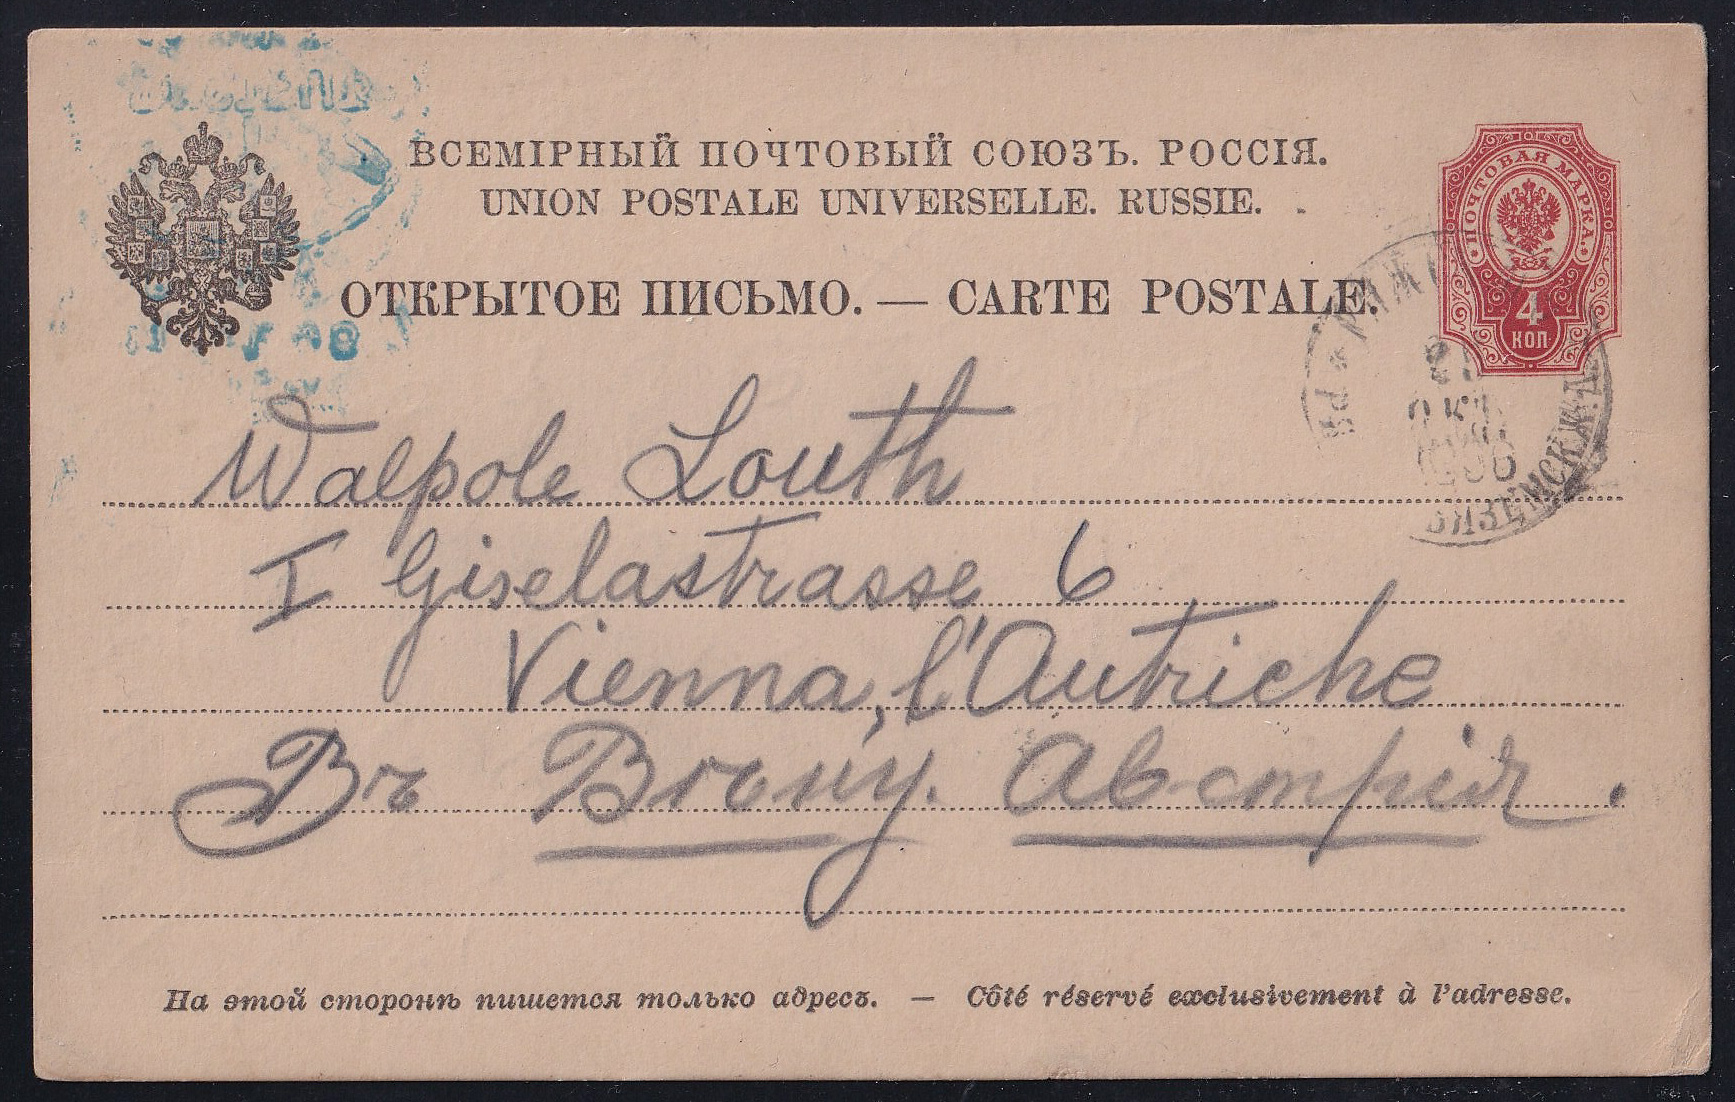 ВСЕМІРНЫЙ ПОЧТОВЫЙ СОЮЗЪ. РОССІЯ.
UNION POSTALE UNIVERSELLE. RUSSIE.
ОТКРЫТОЕ ПИСЬМО. — CARTE POSTALE.
ПОЧТОВАЯ МАРКА.
4
КОП
Walpole Louth
I Giselastrasse 6
Vienna, l'Autriche
Въ Вѣну. Австрія.
На этой сторонѣ пишется только адресъ. — Côté réservé exclusivement à l'adresse.